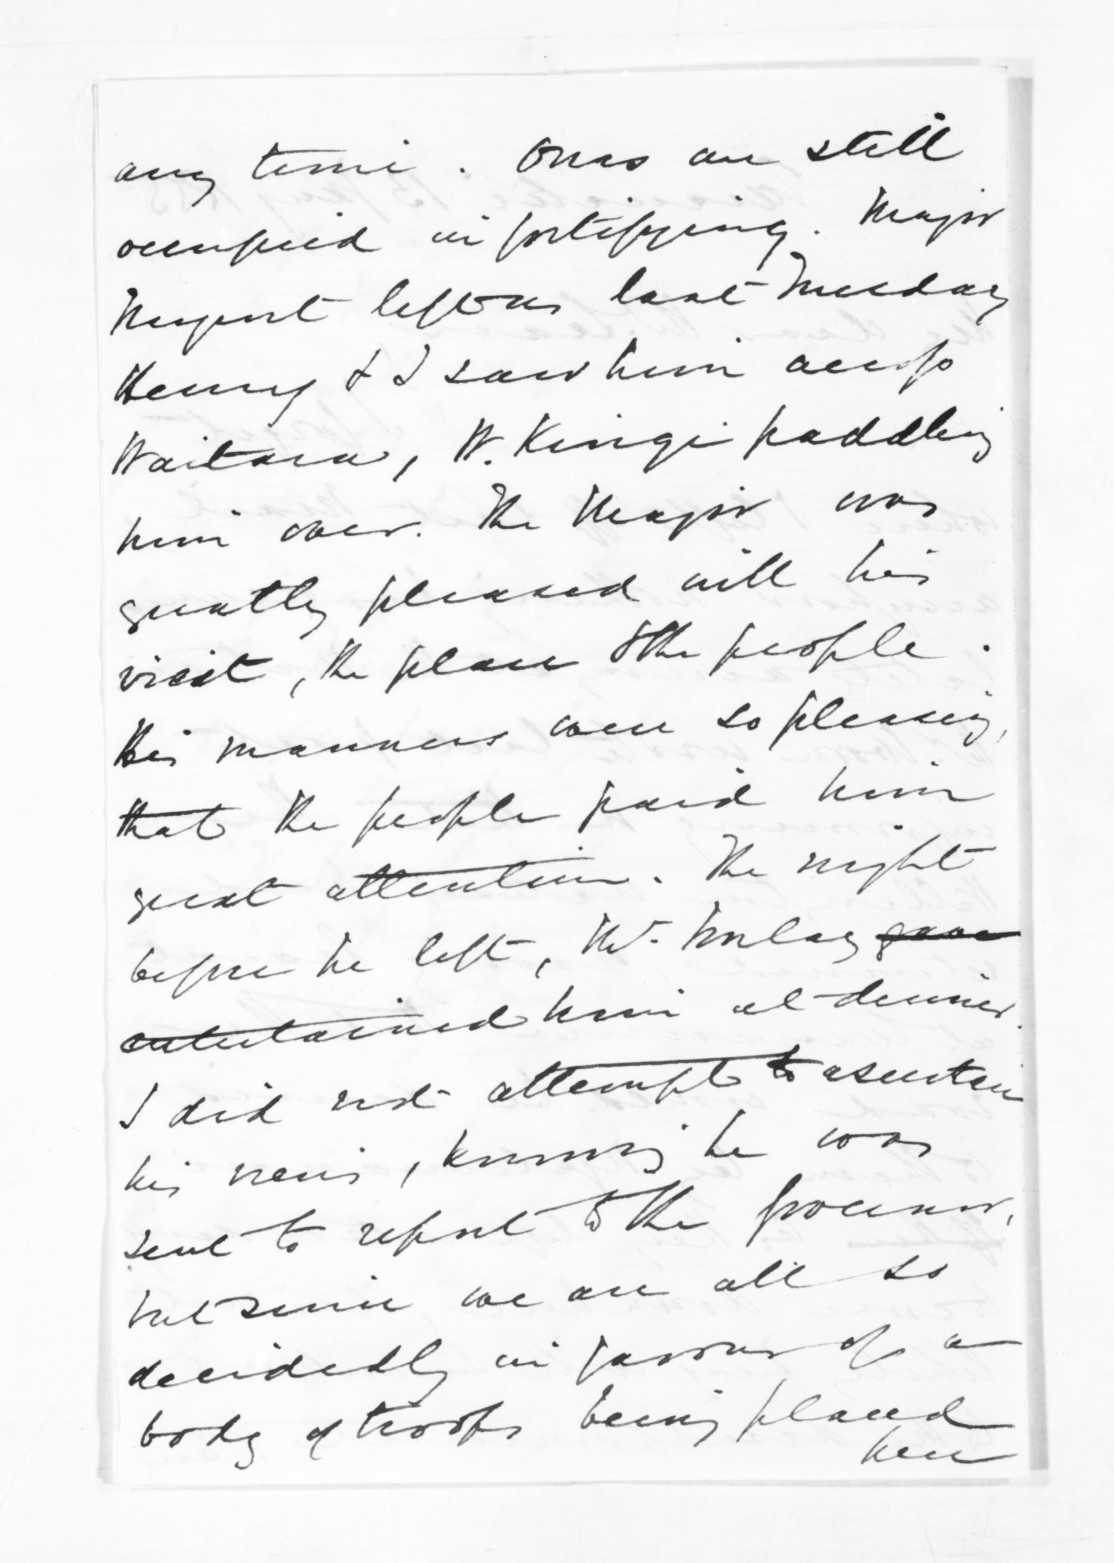 any time. Onas are still
occupied in fortifying. Major
Nugent left us last Tuesday
Henry & I saw him across
Waitara, W. Kingi paddling
him over. The Major was
greatly pleased with his
visit, the place & the people.
His manners were so pleasing,
that the people paid him
great attention. The night
before he left, Mr. Turlay gave
entertained him at dinner.
I did not attempt to ascertain
his views, knowing he was
sent to report to the Governor,
but since we are all so
decidedly in favour of a
body of troops being placed
here